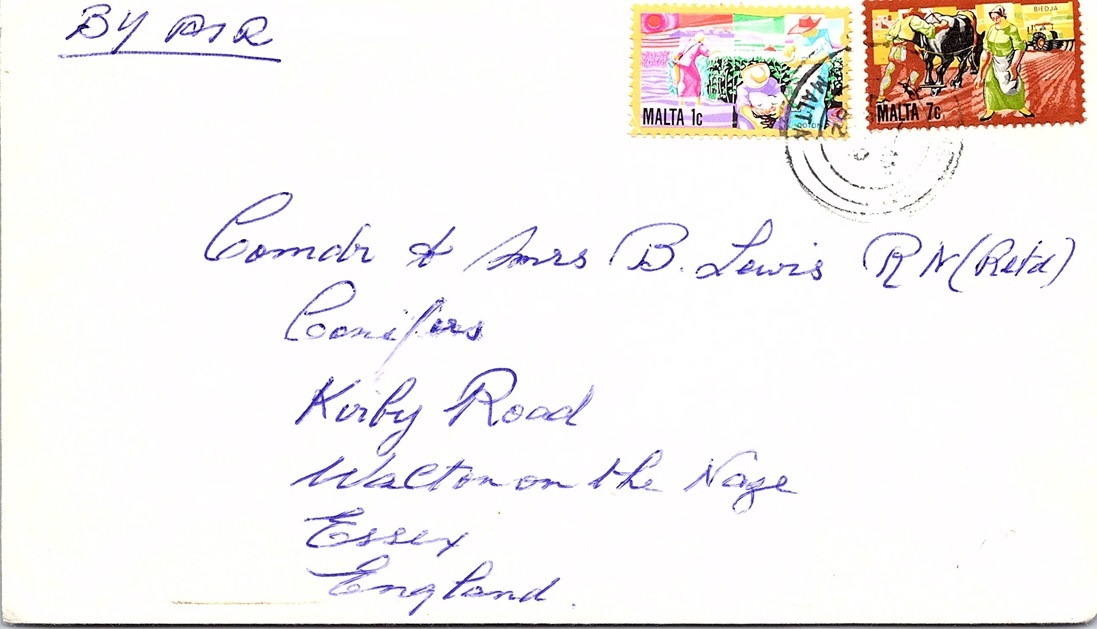 BY AIR
MALTA 1c
QOTON
BIEDJA
MALTA 7c
MALTA
Comdr & Mrs B. Lewis RN (Retd)
Conifers
Kirby Road
Walton on the Naze
Essex
England.